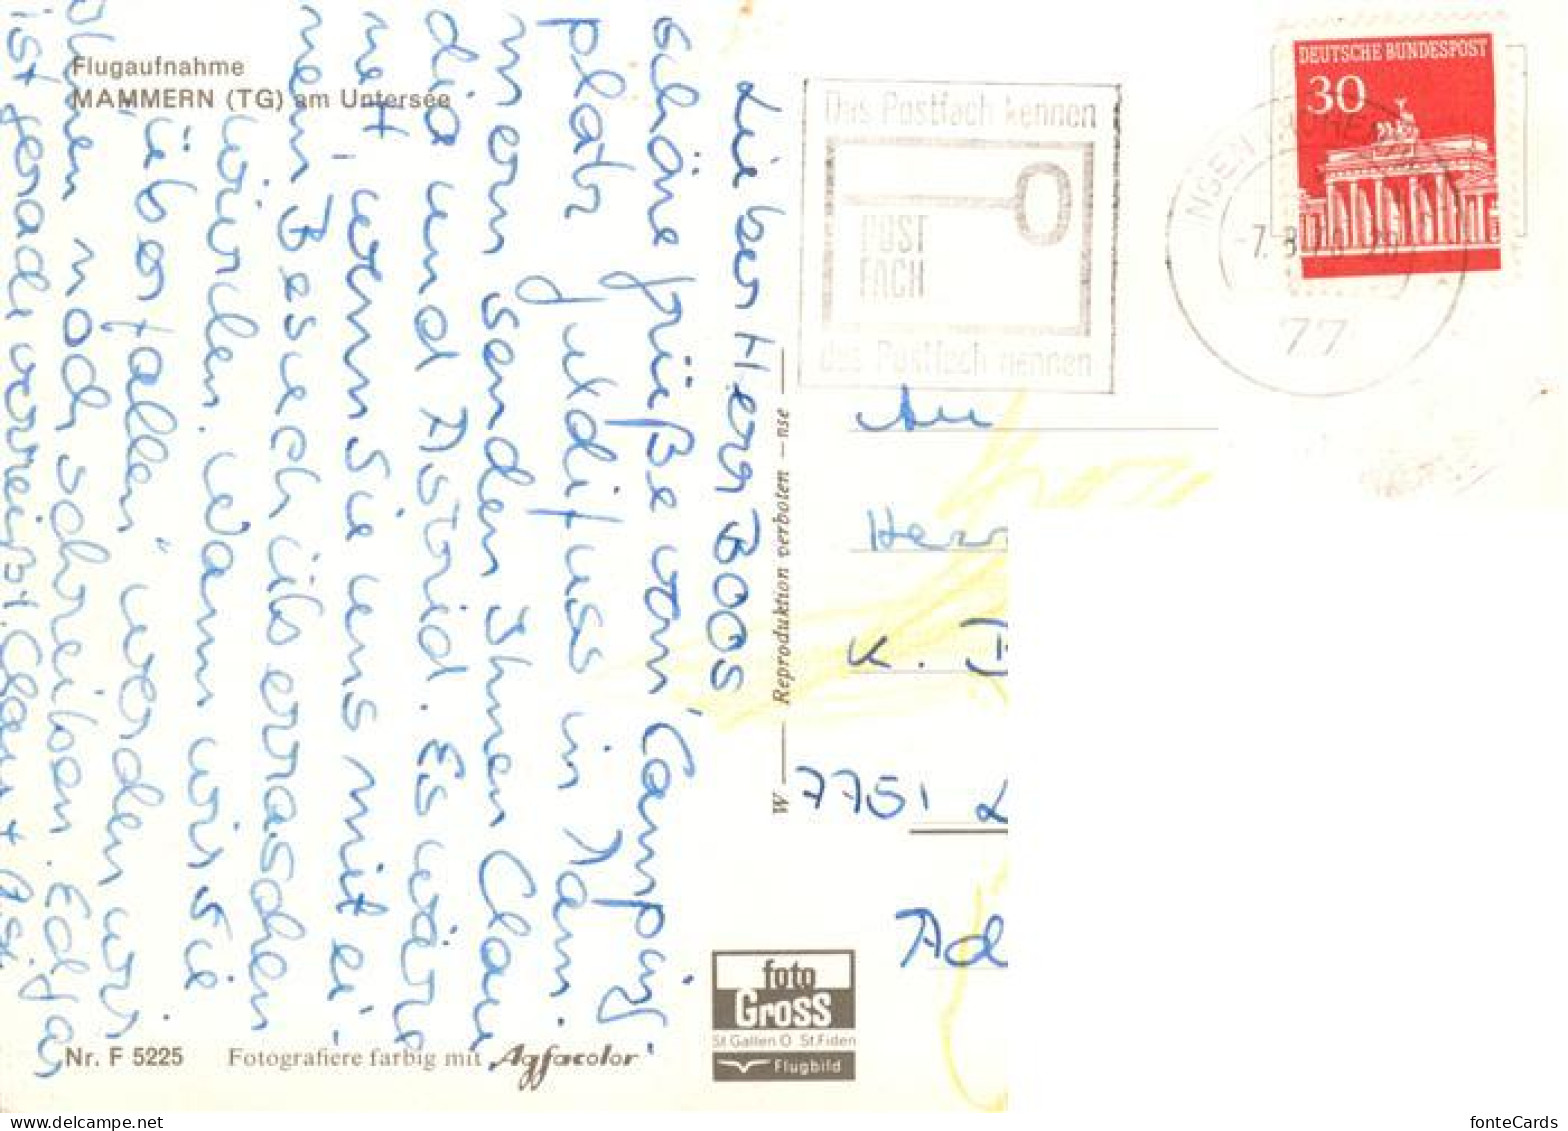 Flugaufnahme
MAMMERN (TG) am Untersee
Lieber Herr Boos
schöne Grüße vom Camping-
platz Guldifuss in Mam-
mern senden Ihnen Clau-
dia und Astrid. Es wäre
nett, wenn Sie uns mit ei-
nem Besuch überraschen
würden. Wann wir Sie
"überfallen" werden wir
Ihnen noch schreiben. Edgar
ist gerade verreist.
Das Postfach kennen
POST
FACH
das Postfach nennen
DEUTSCHE BUNDESPOST
30
77
An
Herr
K.
7751
W — Reproduktion verboten — nse —
foto
Gross
St.Gallen O St.Fiden
Flugbild
Nr. F 5225 Fotografiere farbig mit Agfacolor
fonteCards